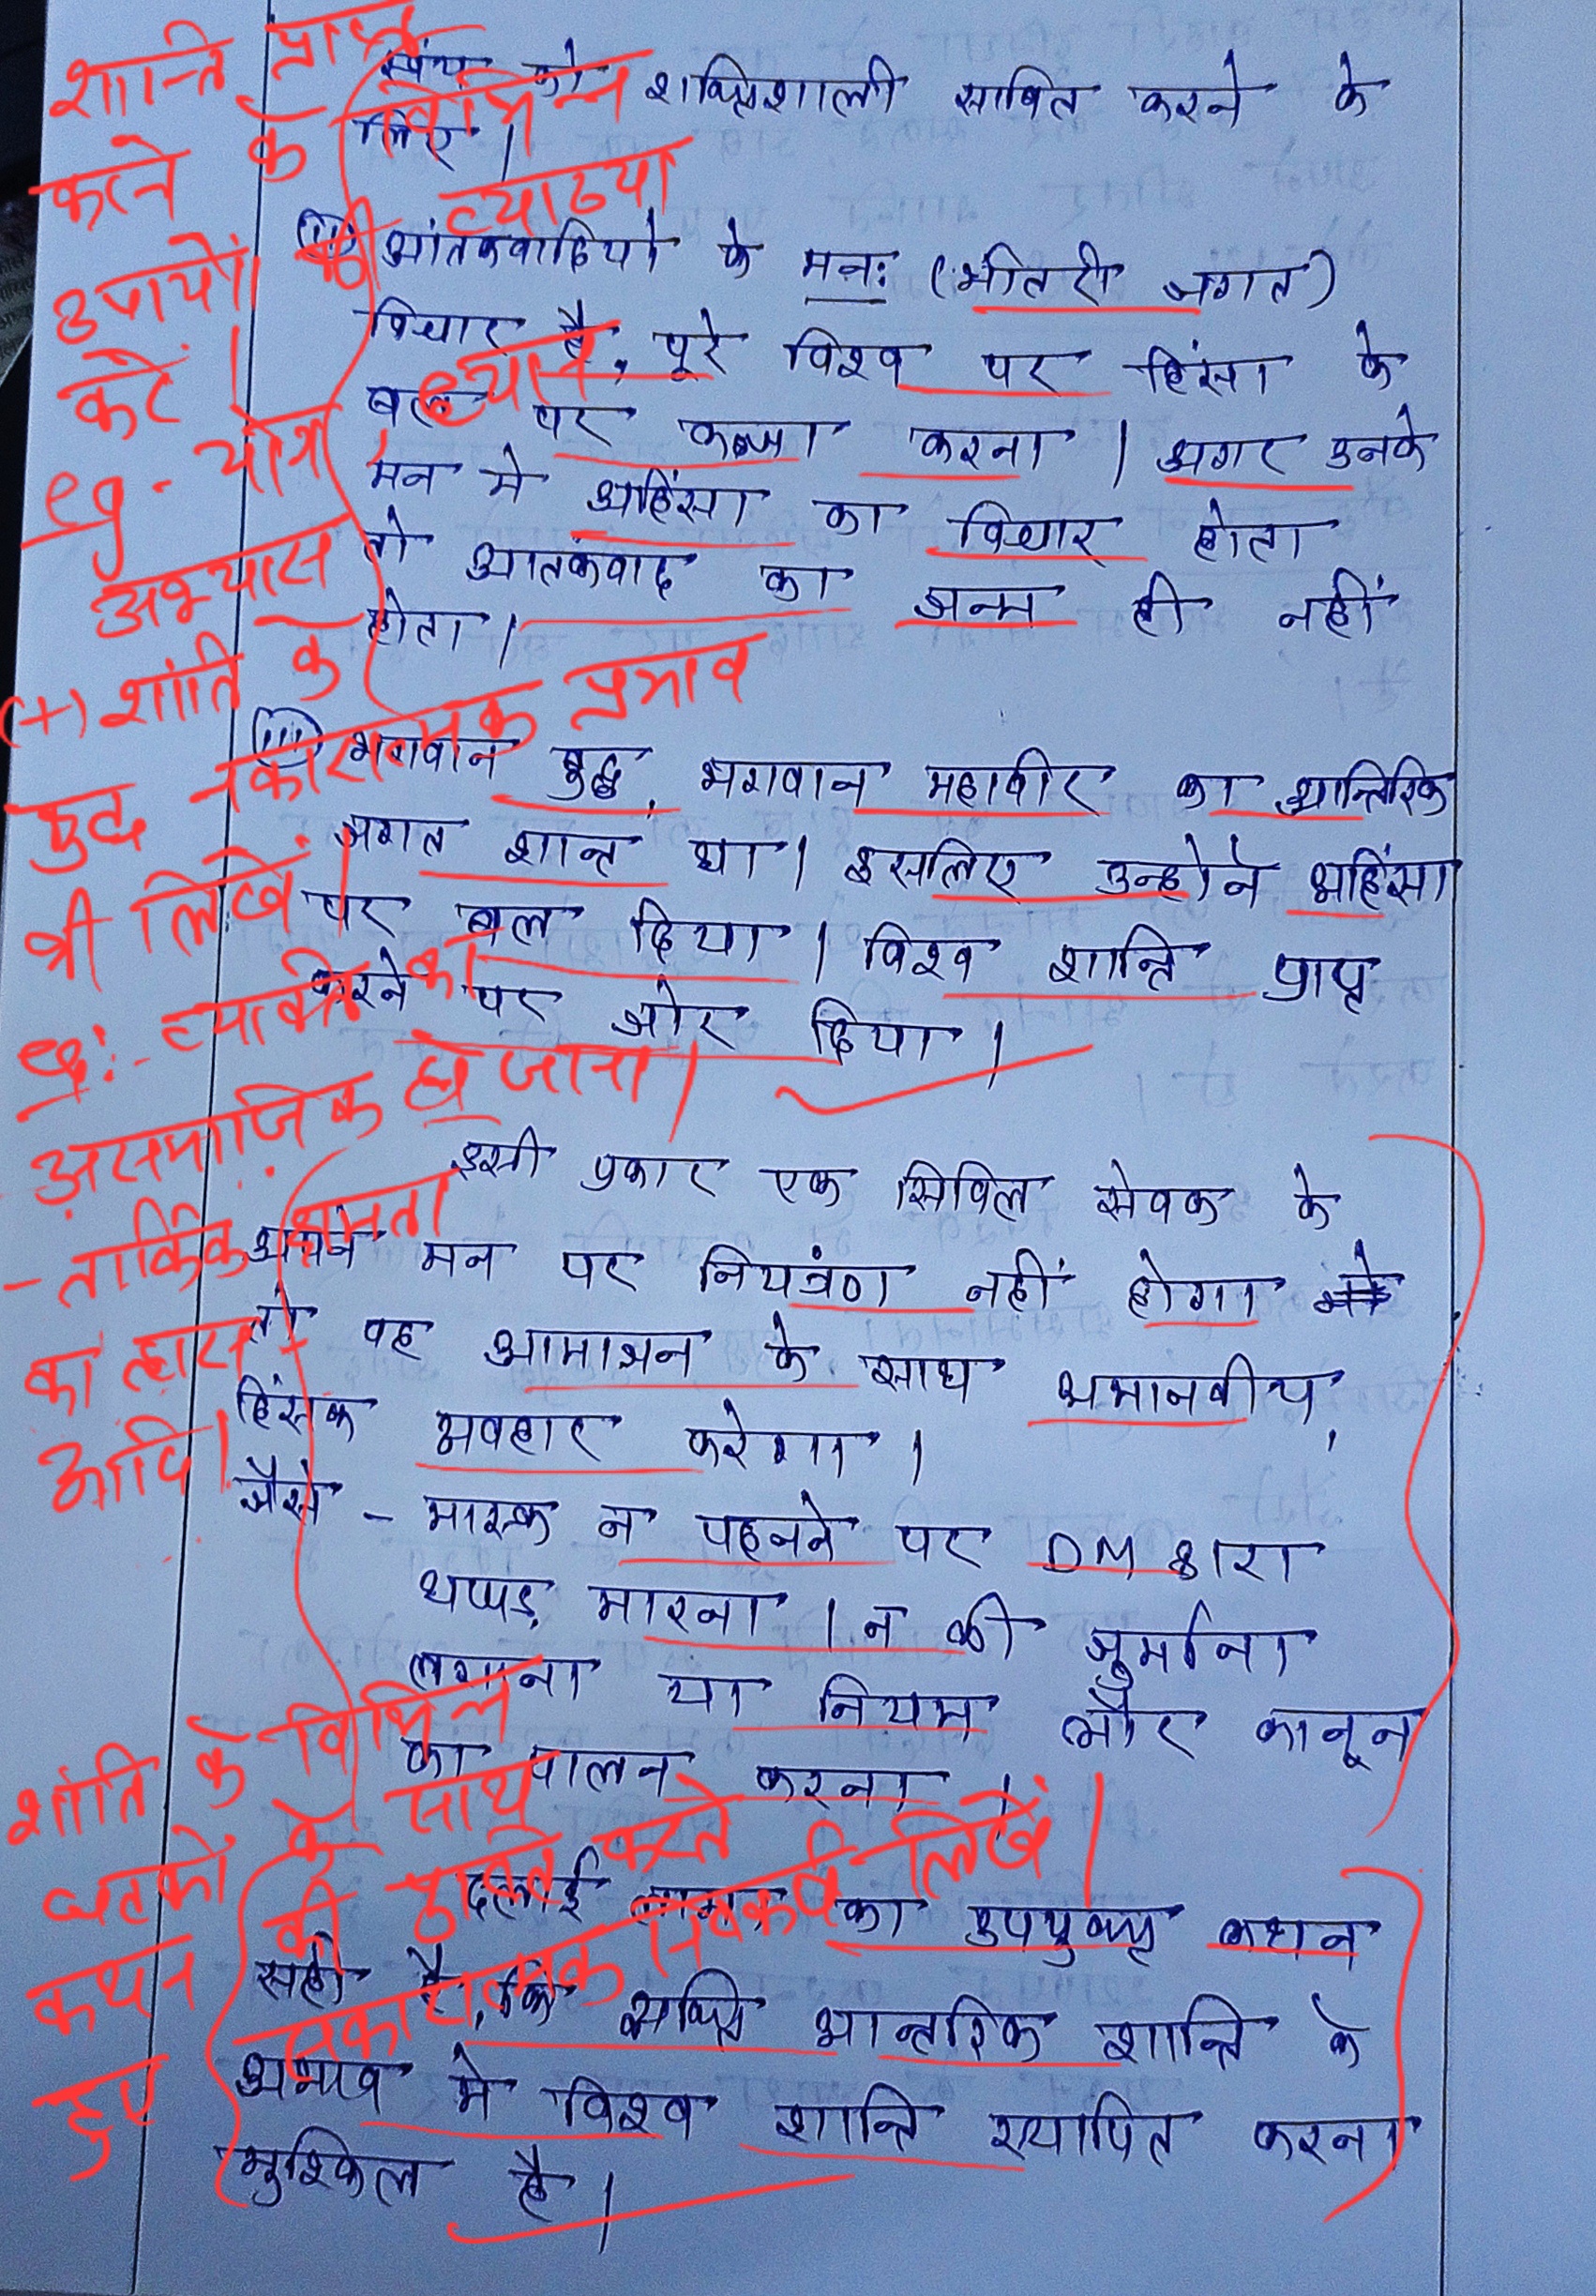 स्वंय को शक्तिशाली साबित करने के
लिए।
(ii) आंतकवादियो के मन: (भीतरी जगत)
विचार है, पूरे विश्व पर हिंसा के
बल पर कब्जा करना। अगर उनके
मन मे अहिंसा का विचार होता
तो आतकंवाद का जन्म ही नहीं
होता।
(iii) भगवान बुद्ध, भगवान महावीर का आन्तिरिक
जगत शान्त था। इसलिए उन्होने अहिंसा
पर बल दिया। विश्व शान्ति प्राप्त
करने पर जोर दिया।
इसी प्रकार एक सिविल सेवक के
अपने मन पर नियत्रंण नहीं होगा
तो वह आमाजन के साथ अमानवीय,
हिंसक व्यवहार करेगा।
जैसे - मास्क न पहनने पर DM द्वारा
थप्पड़ मारना। न की जुर्माना
लगाना या नियम और कानून
का पालन करना
दलाई लामा का उपयुक्त कथन
सही है, कि व्यक्ति आन्तरिक शान्ति के
अभाव मे विश्व शान्ति स्थापित करना
मुश्किल है।
शान्ति प्राप्त
करने के विभिन्न
उपायों की व्याख्या
करें।
eg - योग, ध्यान
अभ्यास
(+) शांति के
कुछ नकारात्मक प्रभाव
भी लिखें।
eg:- व्यक्ति का
असामाजिक हो जाना।
- तार्किक क्षमता
का ह्रास
आदि।
शांति के विभिन्न
घटकों के साथ
कथन की पुष्टि करते
हुए सकारात्मक निष्कर्ष लिखें।